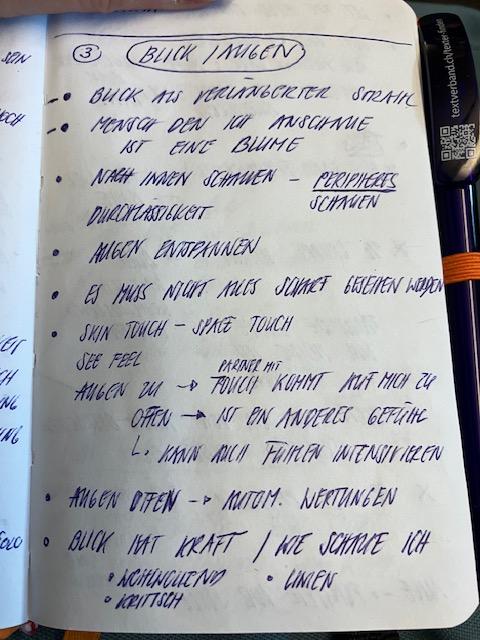 ③ BLICK / AUGEN
- • BLICK ALS VERLÄNGERTER STRAHL
- • MENSCH DEN ICH ANSCHAUE
IST EINE BLUME
• NACH INNEN SCHAUEN – PERIPHERES
SCHAUEN
DURCHLÄSSIGKEIT
• AUGEN ENTSPANNEN
• ES MUSS NICHT ALLES SCHARF GESEHEN WERDEN
• SKIN TOUCH – SPACE TOUCH
SEE FEEL
PARTNER MIT
AUGEN ZU → TOUCH KOMMT AUF MICH ZU
OFFEN → IST EIN ANDERES GEFÜHL
L. KANN AUCH FÜHLEN INTENSIVIEREN
• AUGEN OFFEN → AUTOM. WERTUNGEN
• BLICK HAT KRAFT / WIE SCHAUE ICH
• WOHLWOLLEND • LINIEN
• KRITISCH
textverband.ch/texter-finden
SEIN
OCH
CH
NG
UNG
SOLO